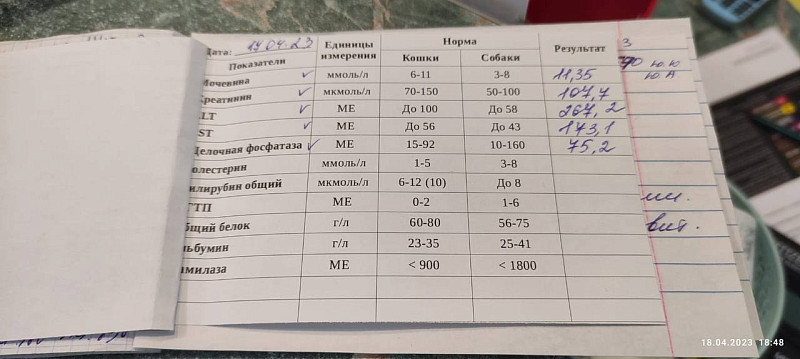 Дата:
Показатели
Единицы измерения
Норма
Кошки
Собаки
Результат
Мочевина ммоль/л 6-11 3-8 11,35
Креатинин мкмоль/л 70-150 50-100 107,7
АLТ МЕ До 100 До 58 267,2
АSТ МЕ До 56 До 43 173,1
Щелочная фосфатаза МЕ 15-92 10-160 75,2
олестерин ммоль/л 1-5 3-8
илирубин общий мкмоль/л 6-12 (10) До 8
ГТП МЕ 0-2 1-6
бщий белок г/л 60-80 56-75
льбумин г/л 23-35 25-41
милаза МЕ < 900 < 1800
18.04.2023 18:48